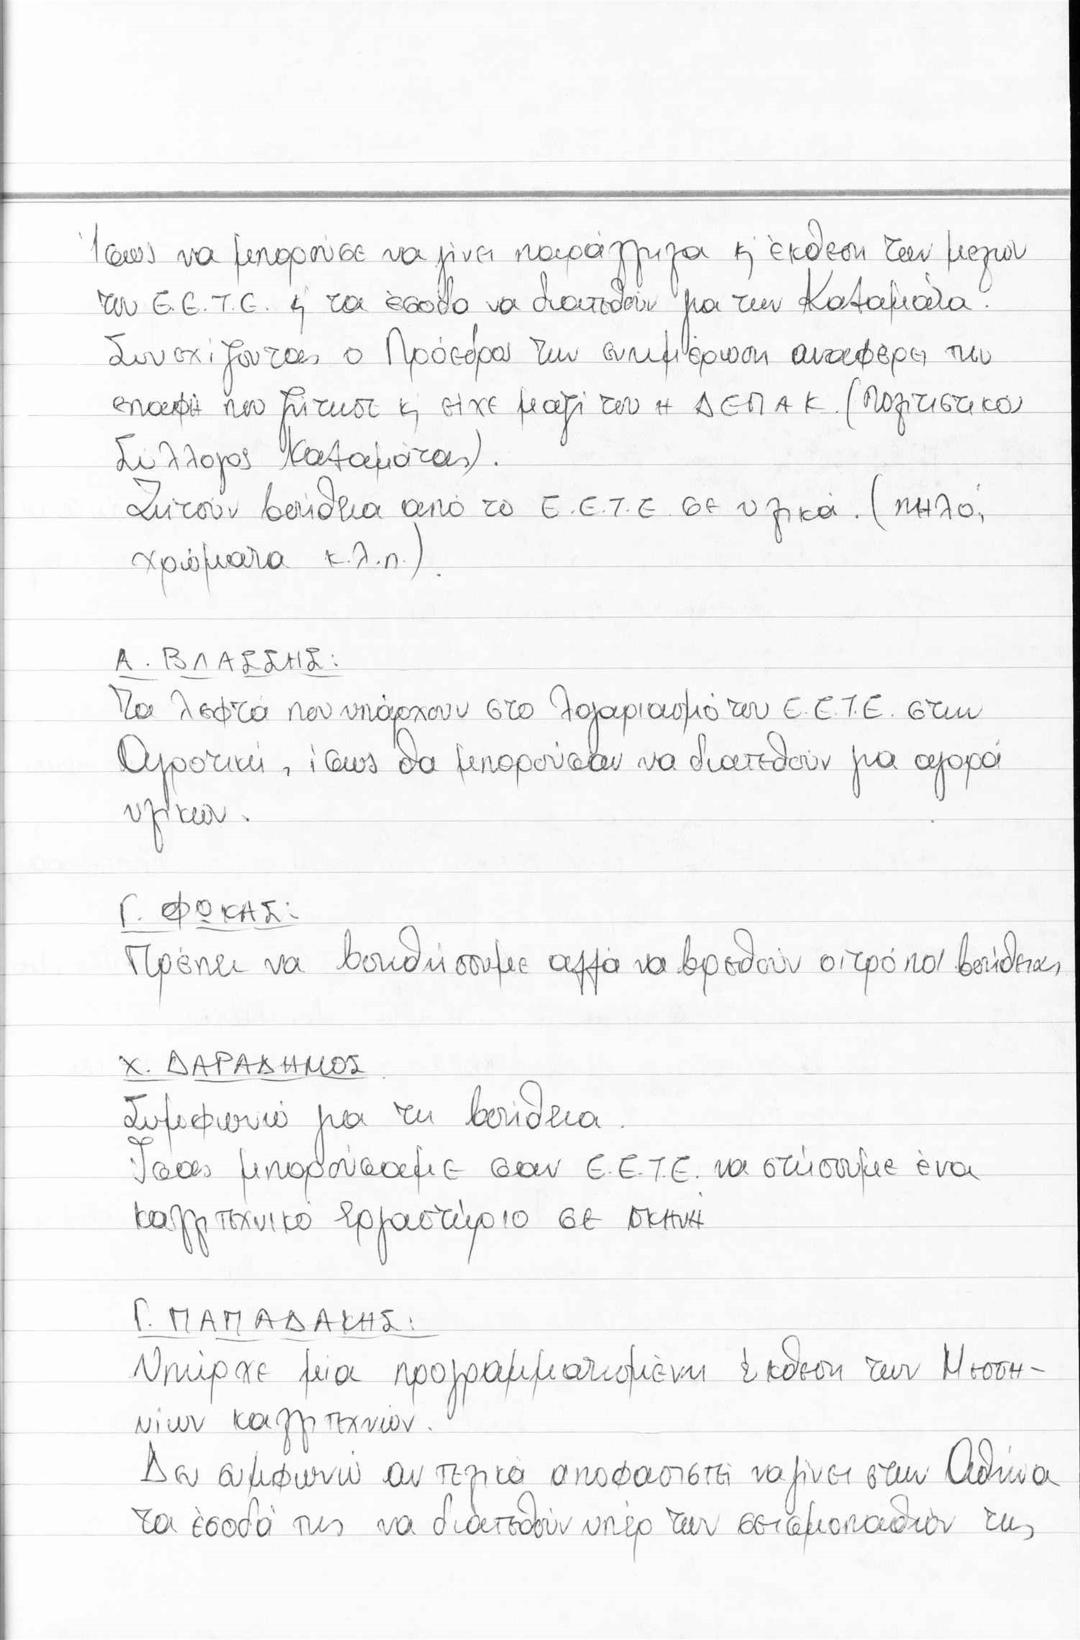 Ίσως να μπορούσε να γίνει παράλληλα κ' έκθεση των μελών
του Ε.Ε.Τ.Ε. κ' τα έσοδα να διατεθούν για την Καλαμάτα.
Συνεχίζοντας ο Πρόεδρος την ενημέρωση αναφέρει την
επαφή που ζήτησε κ' είχε μαζί του η ΔΕΠΑΚ. (Πολιτιστικός
Σύλλογος Καλαμάτας).
Ζητούν βοήθεια από το Ε.Ε.Τ.Ε. σε υλικά. (πηλό,
χρώματα κ.λ.π.).
Α. ΒΛΑΣΣΗΣ:
Τα λεφτά που υπάρχουν στο λογαριασμό του Ε.Ε.Τ.Ε. στην
Αγροτική, ίσως θα μπορούσαν να διατεθούν για αγορά
υλικών.
Γ. ΦΩΚΑΣ:
Πρέπει να βοηθήσουμε αλλά να βρεθούν οι τρόποι βοήθειας
Χ. ΔΑΡΑΔΗΜΟΣ
Συμφωνώ για τη βοήθεια.
Ίσως μπορούσαμε σαν Ε.Ε.Τ.Ε. να στήσουμε ένα
καλλιτεχνικό εργαστήριο σε σκηνή
Γ. ΠΑΠΑΔΑΚΗΣ:
Υπήρχε μία προγραμματισμένη έκθεση των Μεσση-
νίων καλλιτεχνών.
Δεν συμφωνώ αν τελικά αποφασιστεί να γίνει στην Αθήνα
τα έσοδά της να διατεθούν υπέρ των σεισμοπαθών της